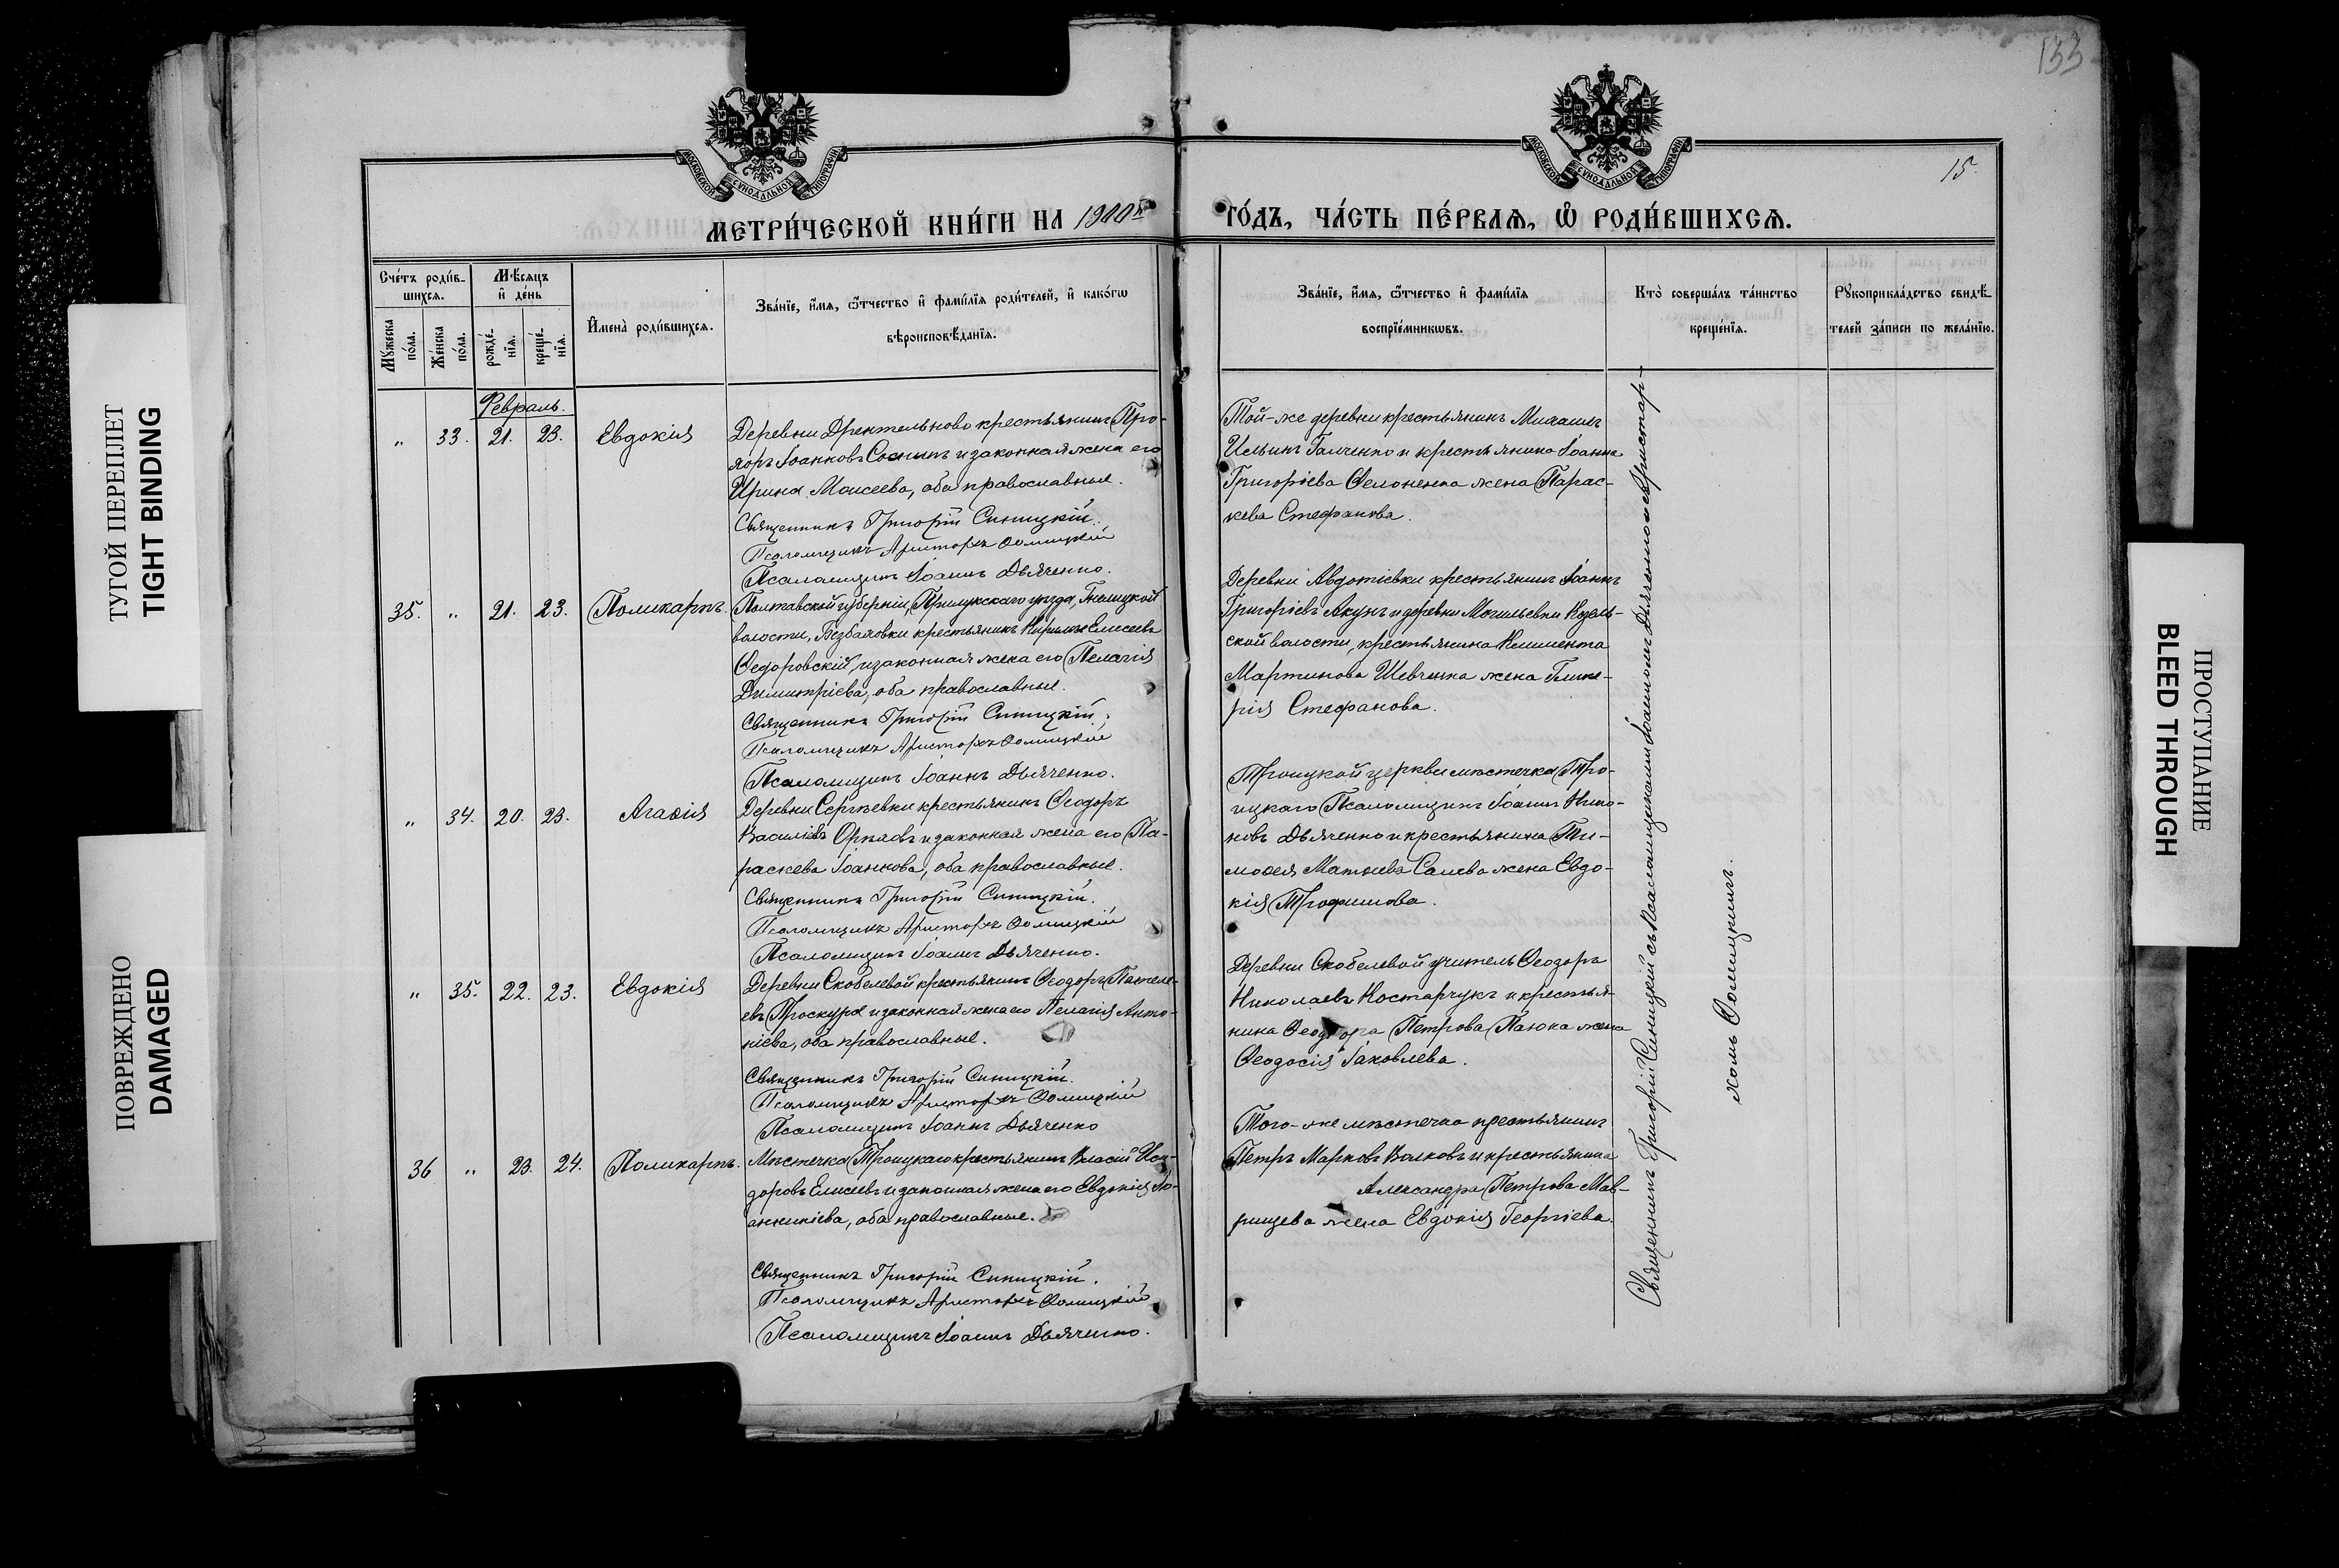 133
15.
МОСКОВСКОЙ СѴНОДАЛЬНОЙ ТИПОГРАФІИ
МОСКОВСКОЙ СѴНОДАЛЬНОЙ ТИПОГРАФІИ
МЕТРИ́ЧЕСКОЙ КНИ́ГИ НА 1900й
ГО́ДЪ, ЧА́СТЬ ПЕ́РВАѦ, Ѡ҆ РОДИ́ВШИХСѦ.
Сче́тъ роди́в-
шихсѧ.
Мѣ́сѧцъ
и҆ де́нь
Мꙋ́жеска по́ла.
Же́нска по́ла.
рожде́-нїѧ.
креще́-нїѧ.
И҆мена̀ роди́вшихсѧ.
Зва́нїе, и҆́мѧ, ѻ҆́тчество и҆ фами́лїѧ роди́телей, и҆ како́гѡ
вѣроисповѣ́данїѧ.
Зва́нїе, и҆́мѧ, ѻ҆́тчество и҆ фами́лїѧ
воспрїе́мникѡвъ.
Кто̀ соверша́лъ та́инство
креще́нїѧ.
Рꙋкоприкла́дство свидѣ́-
телей за́писи по жела́нїю.
Февраль.
„ 33. 21. 23. Евдокія
Деревни Дрентельново крестьянинъ Про-
хоръ Іоанновъ Соснинъ и законная жена его
Ирина Моисеева, оба православные.
Священникъ Григорій Синицкій.
Псаломщикъ Аристархъ Ѳомицкій
Псаломщикъ Іоаннъ Дьяченко.
Той-же деревни крестьянинъ Михаилъ
Ильинъ Галченко и крестьянина Іоанна
Григорiева Ѳелоненка жена Парас-
кева Стефанова.
35. „ 21. 23. Поликарпъ.
Полтавской губерніи, Прилукскаго уѣзда, Гнѣлицкой
волости, Безбаховки крестьянинъ Кириллъ Елисеевъ
Ѳедоровскій, и законная жена его Пелагія
Димитріева, оба православные.
Священникъ Григорій Синицкій.
Псаломщикъ Аристархъ Ѳомицкій
Псаломщикъ Іоаннъ Дьяченко.
Деревни Авдотіевки крестьянинъ Іоаннъ
Григоріевъ Акунъ и деревни Могильевки Козель-
ской волости, крестьянина Климента
Мартинова Шевченка жена Глике-
рія Стефанова.
„ 34. 20. 23. Агаѳія
Деревни Сергѣевки крестьянинъ Ѳеодоръ
Василіевъ Орѣховъ и законная жена его Па-
раскева Іоаннова, оба православные.
Священникъ Григорій Синицкій.
Псаломщикъ Аристархъ Ѳомицкій
Псаломщикъ Іоаннъ Дьяченко.
Троицкой церкви мѣстечка Тро-
ицкаго Псаломщикъ Іоаннъ Нико-
новъ Дьяченко и крестьянина Ти-
моѳея Матѳеева Салева жена Евдо-
кія Трофимова.
„ 35. 22. 23. Евдокія
Деревни Скобелевой крестьянинъ Ѳеодоръ Пантеле-
евъ Проскура и законная жена его Пелагія Анто-
ніева, оба православные.
Священникъ Григорій Синицкій.
Псаломщикъ Аристархъ Ѳомицкій
Псаломщикъ Іоаннъ Дьяченко
Деревни Скобелевой учитель Ѳеодоръ
Николаевъ Костарчукъ и крестья-
нина Ѳеодора Петрова Паюка жена
Ѳеодосія Іаковлева.
36 „ 23. 24. Поликарпъ.
Мѣстечка Троицкаго крестьянинъ Власій Иси-
доровъ Елисеевъ и законная жена его Евдокія Іо-
анникіева, оба православные.
Священникъ Григорій Синицкій.
Псаломщикъ Аристархъ Ѳомицкій
Псаломщикъ Іоаннъ Дьяченко.
Того-же мѣстечка крестьянинъ
Петръ Марковъ Волковъ и крестьянина
Александра Петрова Мав-
рищева жена Евдокія Георгіева.
Священникъ Григорій Синицкій съ Псаломщиками Іоанномъ Дьяченко и Аристар-
хомъ Ѳомицкимъ.
ТУГОЙ ПЕРЕПЛЕТ
TIGHT BINDING
ПОВРЕЖДЕНО
DAMAGED
ПРОСТУПАНИЕ
BLEED THROUGH